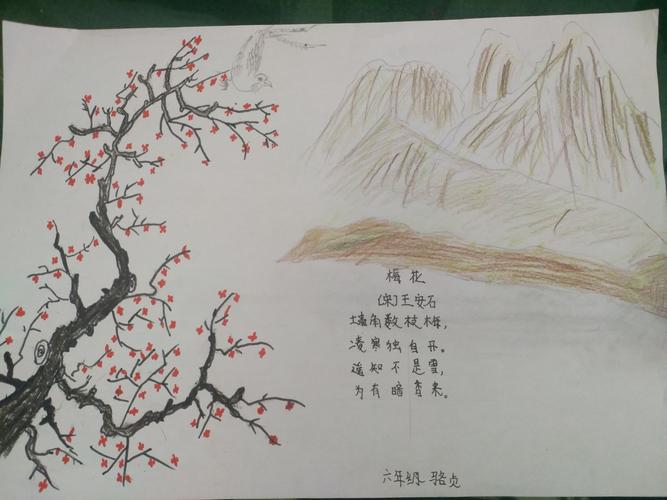 梅花
[宋]王安石
墙角数枝梅，
凌寒独自开。
遥知不是雪，
为有暗香来。
六年级 骆贞